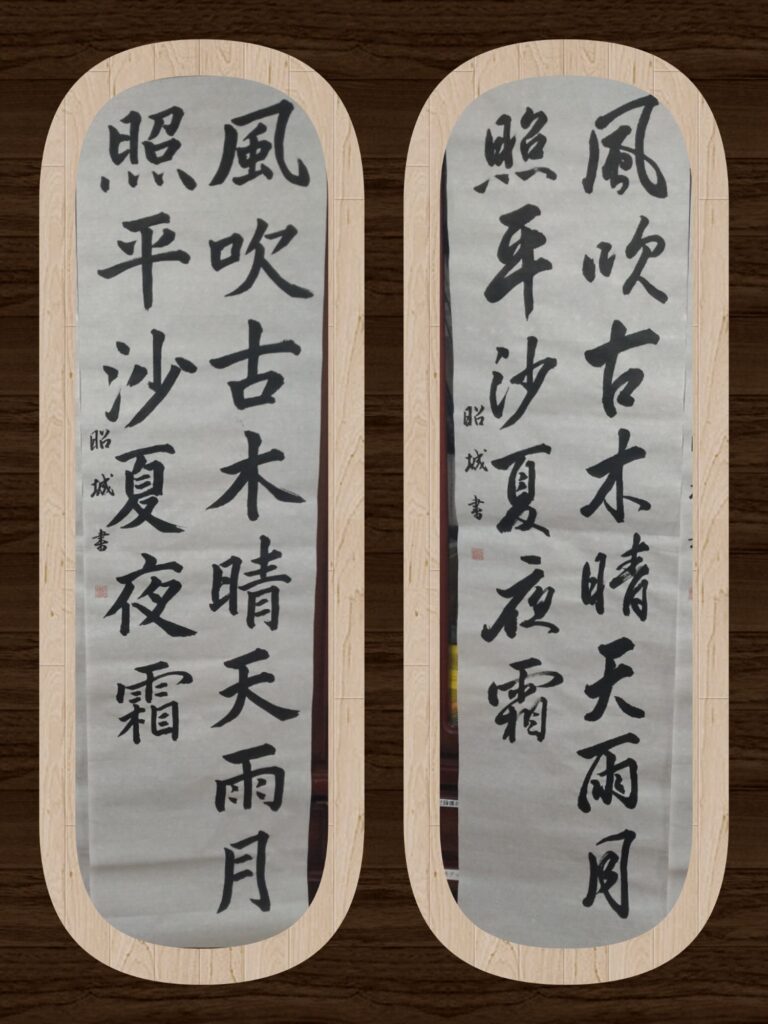 風吹古木晴天雨月
照平沙夏夜霜
昭城書
風吹古木晴天雨月
照平沙夏夜霜
昭城書